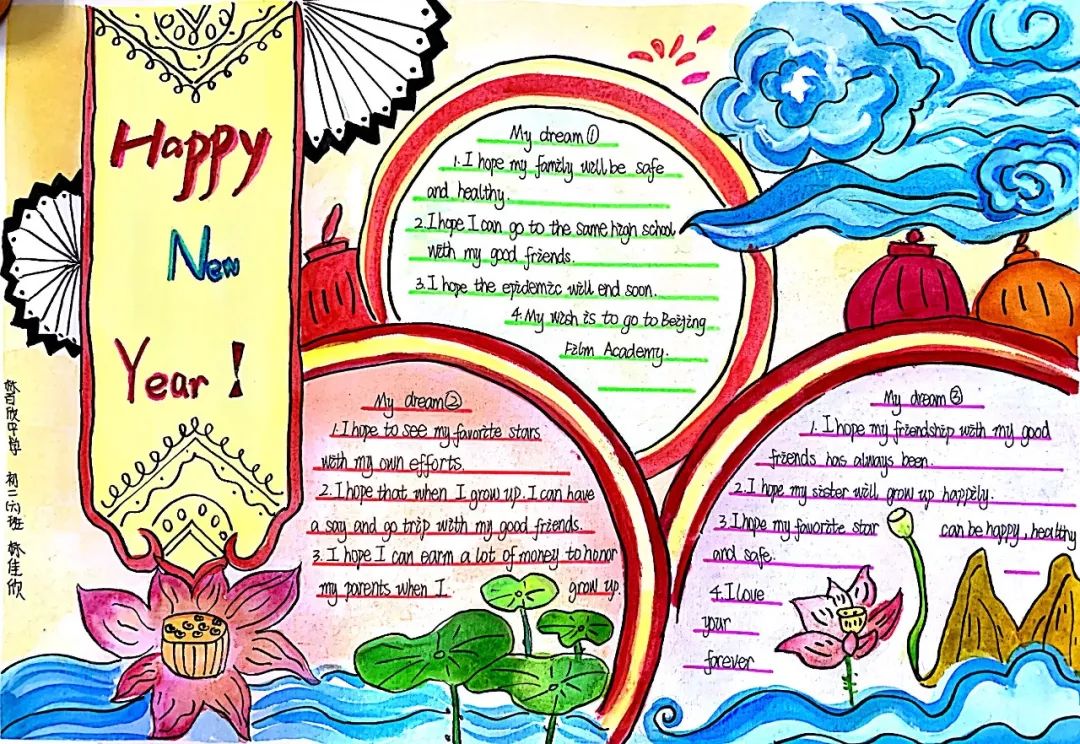 Happy
New
Year!
My dream①
1. I hope my family will be safe
and healthy.
2. I hope I can go to the same high school
with my good friends.
3. I hope the epidemic will end soon.
4. My wish is to go to Beijing
Film Academy.
My dream②
1. I hope to see my favorite stars
with my own efforts.
2. I hope that when I grow up. I can have
a say and go trip with my good friends.
3. I hope I can earn a lot of money to honor
my parents when I grow up.
My dream③
1. I hope my friendship with my good
friends has always been.
2. I hope my sister will grow up happily.
3. I hope my favorite star can be happy, healthy
and safe.
4. I love
your
forever
欣中学 初二 班 佳欣